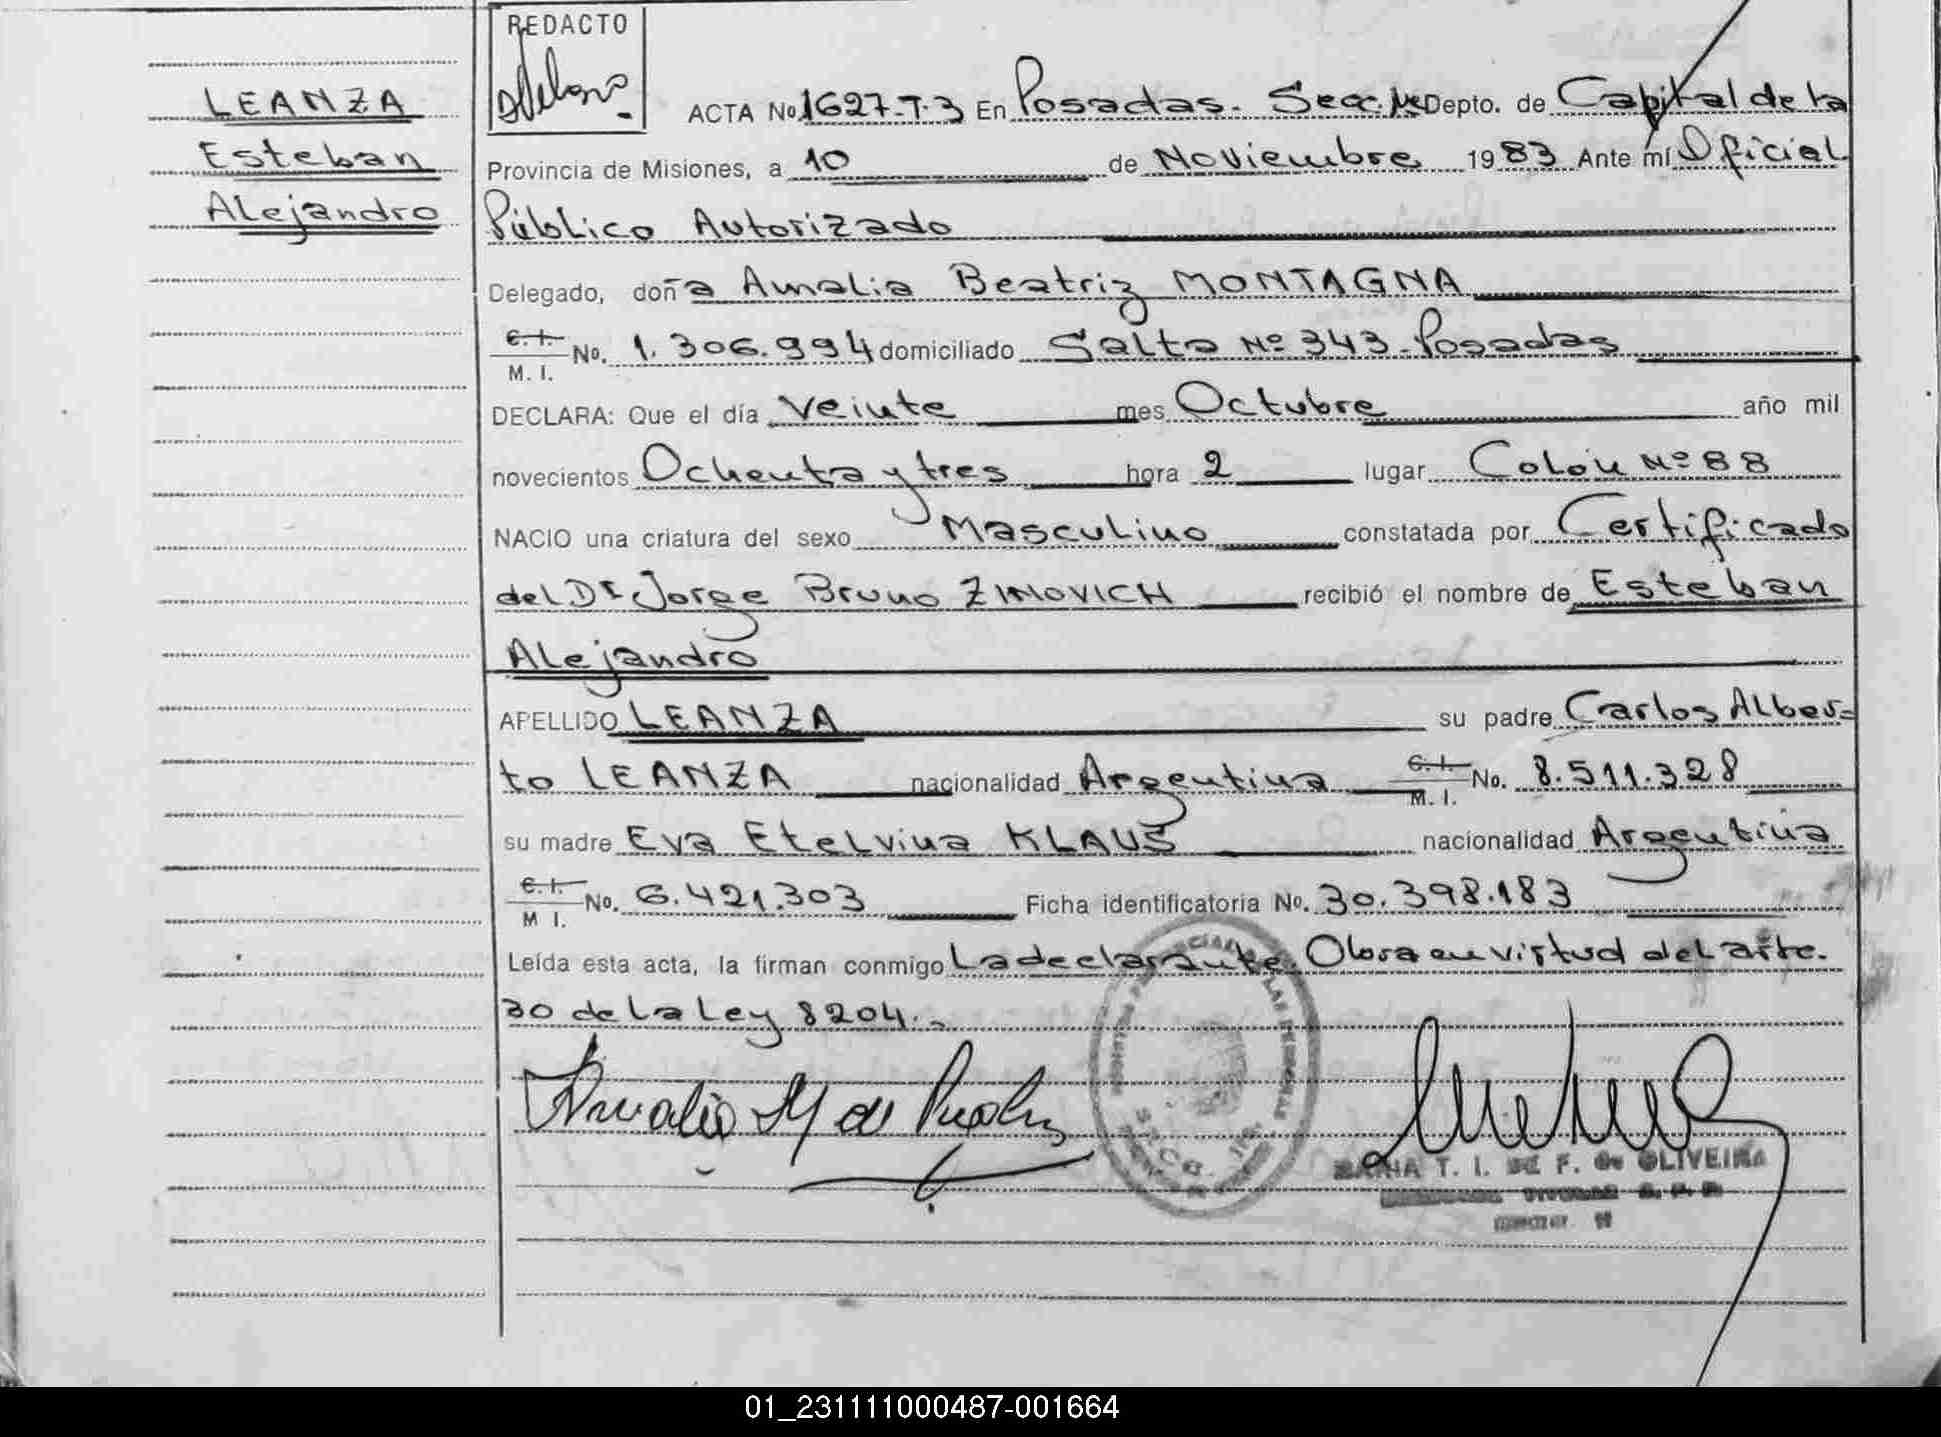 REDACTO
LEANZA
Esteban
Alejandro
ACTA No 1627-T-3 En Posadas. Secc. Depto. de Capital de la
Provincia de Misiones, a 10 de Noviembre 1983 Ante mí Oficial
Público Autorizado
Delegado, doña Amalia Beatriz MONTAGNA
C. I.
M. I.
No. 1.306.994 domiciliado Salta Nº 343-Posadas
DECLARA: Que el día Veinte mes Octubre año mil
novecientos Ochenta y tres hora 2 lugar Colón Nº 88
NACIO una criatura del sexo Masculino constatada por Certificado
del Dr Jorge Bruno ZINOVICH recibió el nombre de Esteban
Alejandro
APELLIDO LEANZA su padre Carlos Alber-
to LEANZA nacionalidad Argentina C. I. No. 8.511.328
M. I.
su madre Eva Etelvina KLAUS nacionalidad Argentina
C. I.
M I.
No. 6.421.303 Ficha identificatoria No. 30.398.183
Leída esta acta, la firman conmigo La declarante. Obra en virtud del arte.
30 de la Ley 8204.-
MARIA T. I. DE F. DE OLIVEIRA
01_231111000487-001664